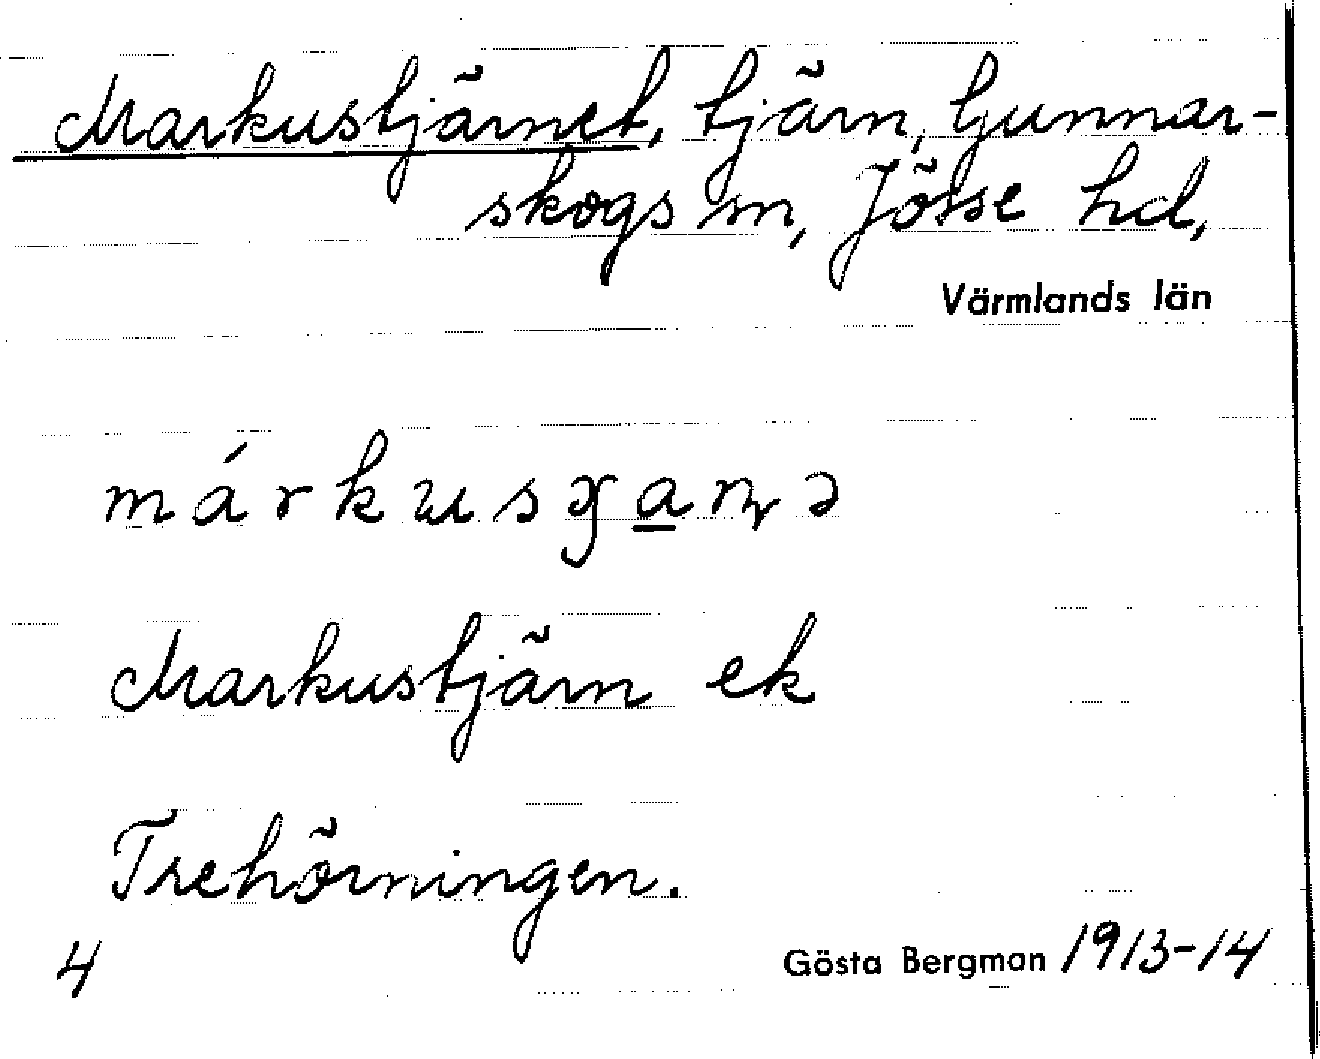 Markustjärnet, tjärn, Gunnar-
skogs sn, Jösse hd,
Värmlands län
Markustjärn ek
Trehörningen.
4
Gösta Bergman 1913-14